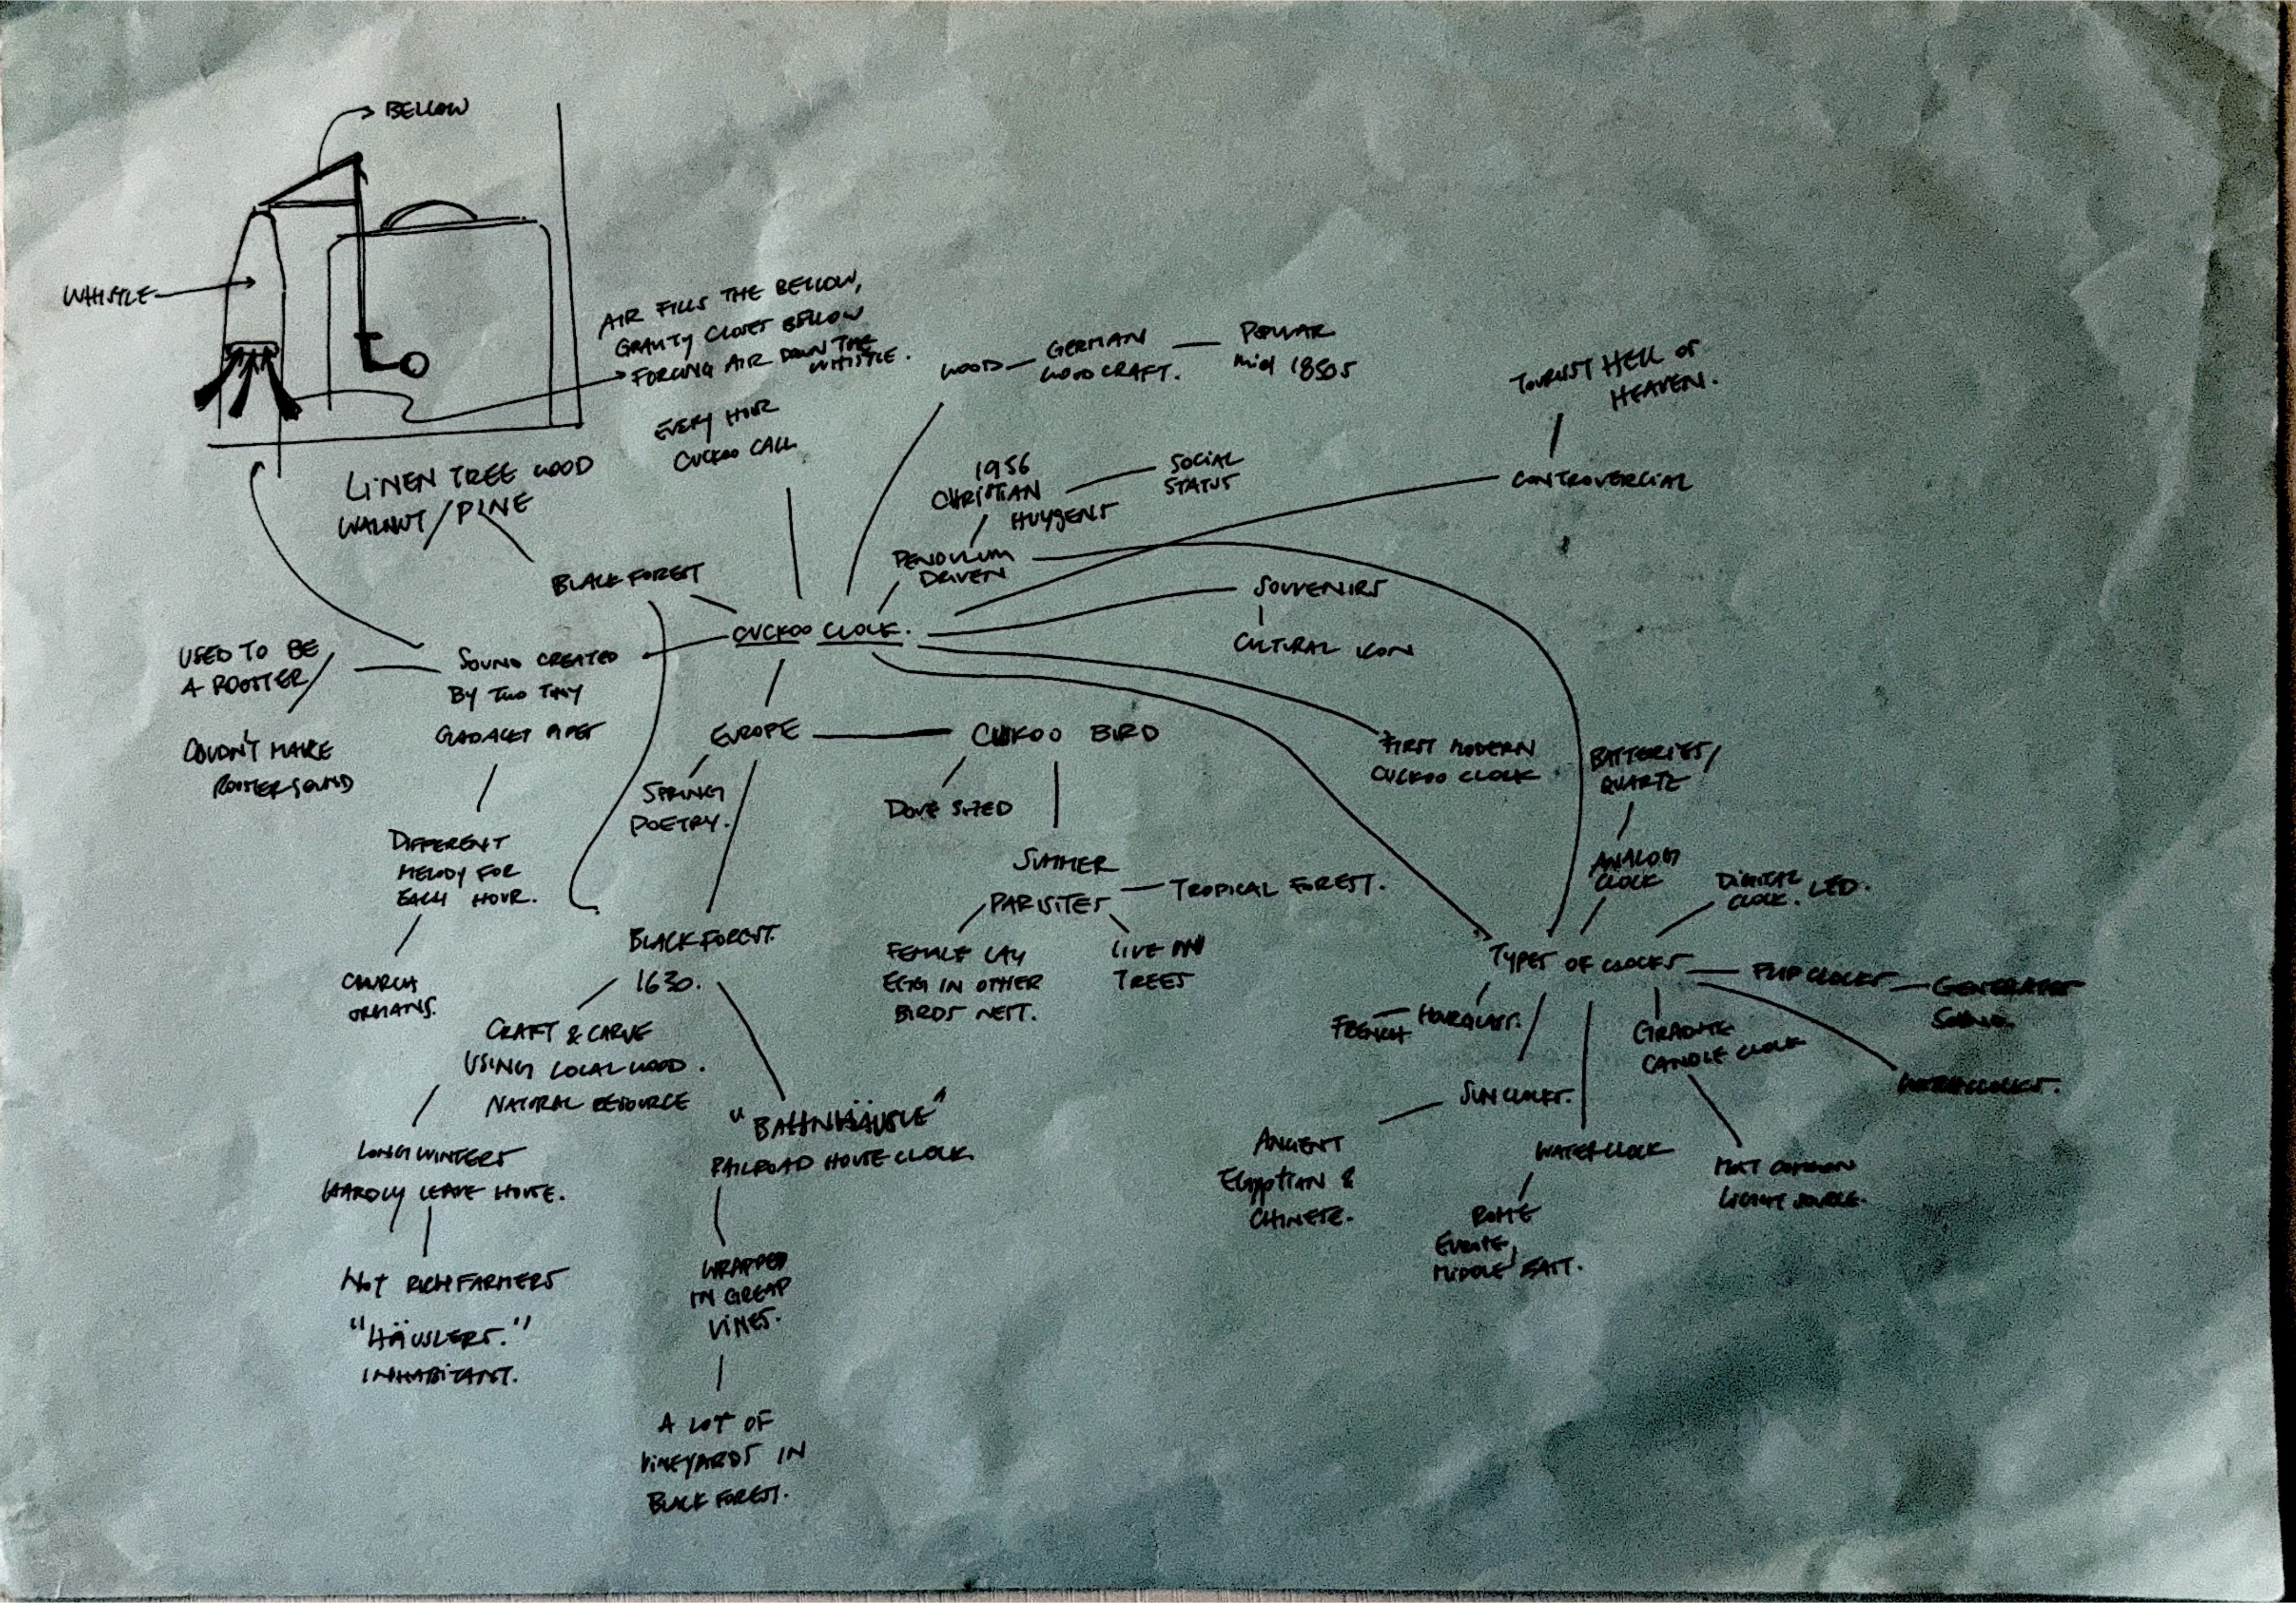 BELLOW
WHISTLE
AIR FILLS THE BELLOW,
GRAVITY CLOSES BELLOW
FORCING AIR DOWN THE
WHISTLE.
EVERY HOUR
CUCKOO CALL
WOOD
GERMAN
WOODCRAFT.
POPULAR
mid 1850s
TOURIST HELL or
HEAVEN.
CONTROVERCIAL
1956
CHRISTIAN
HUYGENS
SOCIAL
STATUS
PENDULUM
DRIVEN
LINEN TREE WOOD
WALNUT / PINE
BLACK FOREST
CUCKOO CLOCK.
SOUVENIRS
CULTURAL ICON
USED TO BE
A ROOSTER/
COUDN'T MAKE
ROOSTER SOUND
SOUND CREATED
BY TWO TINY
PIPES
DIFFERENT
MELODY FOR
EACH HOUR.
CHURCH
ORGANS.
EUROPE
SPRING
POETRY.
CUKOO BIRD
DOVE SIZED
SUMMER
PARISITES
TROPICAL FOREST.
FEMALE LAY
EGG IN OTHER
BIRDS NEST.
LIVE ON
TREES
FIRST MODERN
CUCKOO CLOCK
BATTERIES/
QUARTZ
ANALOG
CLOCK
DIGITAL
CLOCK. LED.
TYPES OF CLOCKS
FLIP CLOCKS
GENERATES
FRENCH
HOURGLASS.
SUNCLOCKS.
ANCIENT
EGYPTIAN &
CHINESE.
WATERCLOCK
ROME
EUROPE,
MIDDLE EAST.
CANDLE CLOCK
MOST COMMON
LIGHT SOURCE.
BLACK FOREST.
1630.
CRAFT & CARVE
USING LOCAL WOOD.
NATURAL RESOURCE
LONG WINTERS
HARDLY LEAVE HOUSE.
NOT RICH FARMERS
"HÄUSLERS."
INHABITANT.
"BAHNHÄUSLE"
RAILROAD HOUSE CLOCK.
WRAPPED
IN GREAP
VINES.
A LOT OF
VINEYARDS IN
BLACK FOREST.